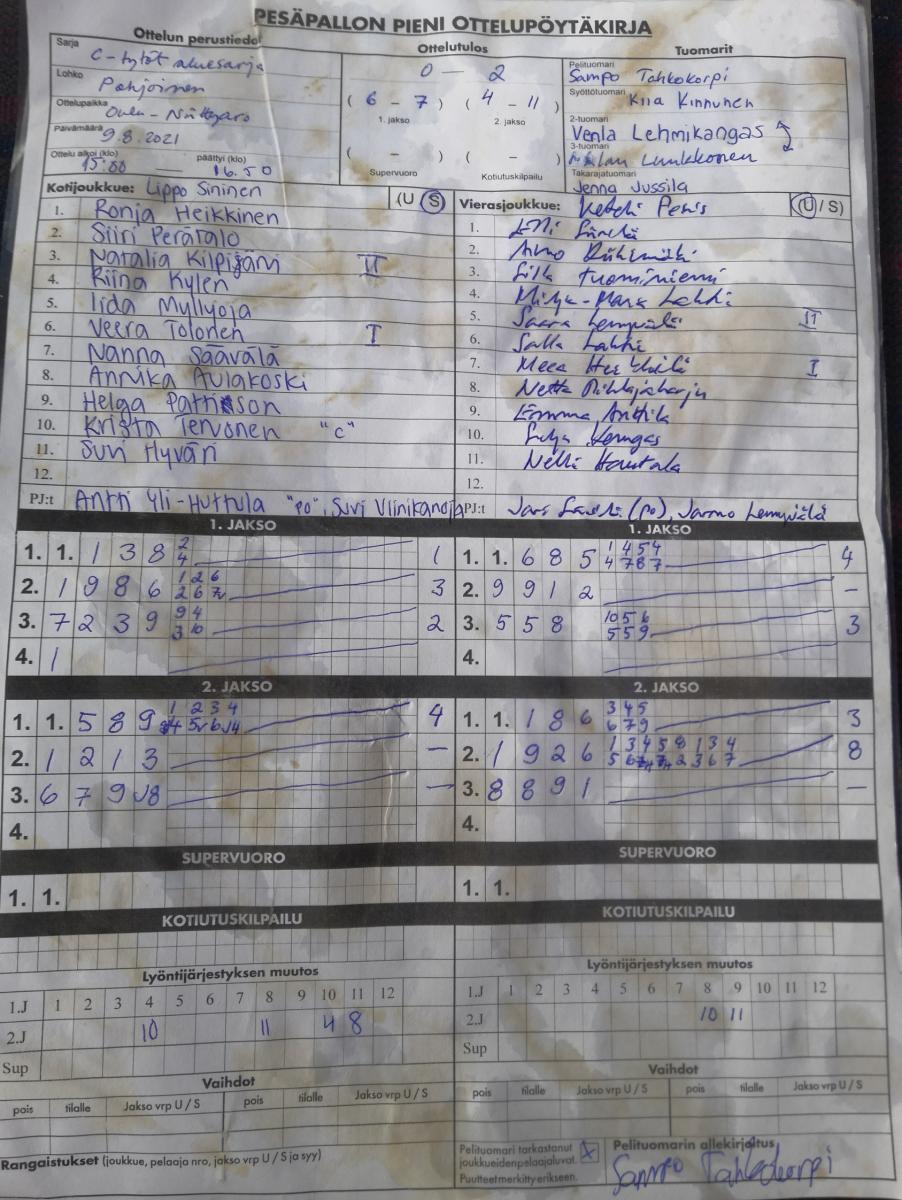 PESÄPALLON PIENI OTTELUPÖYTÄKIRJA
Ottelun perustiedot
Sarja
C-tytöt aluesarja
Lohko
Pohjoinen
Ottelupaikka
Oulu -
Päivämäärä
9.8.2021
Ottelu alkoi (klo) päättyi (klo)
15:00 — 16.50
Ottelutulos
0 — 2
( 6 - 7 ) ( 4 - 11 )
1. jakso 2. jakso
( - ) ( - )
Supervuoro Kotiutuskilpailu
Tuomarit
Pelituomari
Sampo Tahkokorpi
Syöttötuomari
Kiia Kinnunen
2-tuomari
Venla Lehmikangas
3-tuomari
Luukkonen
Takarajatuomari
Jenna Jussila
Kotijoukkue: Lippo Sininen (U S)
1. Ronja Heikkinen
2. Siiri Perätalo
3. Natalia Kilpijärvi II
4. Riina Kylen
5. Iida Myllyoja
6. Veera Tolonen I
7. Nanna Säävälä
8. Annika Aulakoski
9. Helga Pattison
10. Krista Tervonen "C"
11. Suvi Hyväri
12.
PJ:t Antti Yli-Huttula "PO", Suvi Viinikanoja
Vierasjoukkue: Pesis (U / S)
1.
2.
3. Tuominiemi
4. Lahti
5. Saara Lempiälä II
6. Salla Lahti
7. I
8. Netta
9. Emma Anttila
10.
11. Nelli Hautala
12.
PJ:t Jari (PO), Jarmo
1. JAKSO
1. 1. 1 3 8 2 1
4
2. 1 9 8 6 1 2 6 3
2 6 7v
3. 7 2 3 9 9 4 2
3 10
4. 1
1. JAKSO
1. 1. 6 8 5 1 4 5 4 4
4 7 8 7
2. 9 9 1 2 -
3. 5 5 8 10 5 6 3
5 5 9
4.
2. JAKSO
1. 1. 5 8 9 1 2 3 4 4
2. 1 2 1 3 —
3. 6 7 9 J8 —
4.
2. JAKSO
1. 1. 1 8 6 3 4 5 3
6 7 9
2. 1 9 2 6 1 3 4 5 8 1 3 4 8
3. 8 8 9 1 -
4.
SUPERVUORO
1. 1.
SUPERVUORO
1. 1.
KOTIUTUSKILPAILU
KOTIUTUSKILPAILU
Lyöntijärjestyksen muutos
1.J 1 2 3 4 5 6 7 8 9 10 11 12
2.J 10 11 4 8
Sup
Lyöntijärjestyksen muutos
1.J 1 2 3 4 5 6 7 8 9 10 11 12
2.J 10 11
Sup
Vaihdot
pois tilalle Jakso vrp U / S pois tilalle Jakso vrp U / S
Vaihdot
pois tilalle Jakso vrp U / S pois tilalle Jakso vrp U / S
Rangaistukset (joukkue, pelaaja nro, jakso vrp U / S ja syy)
Pelituomari tarkastanut
joukkueidenpelaajaluvat. X
Puutteet merkitty erikseen.
Pelituomarin allekirjoitus
Sampo Tahkokorpi